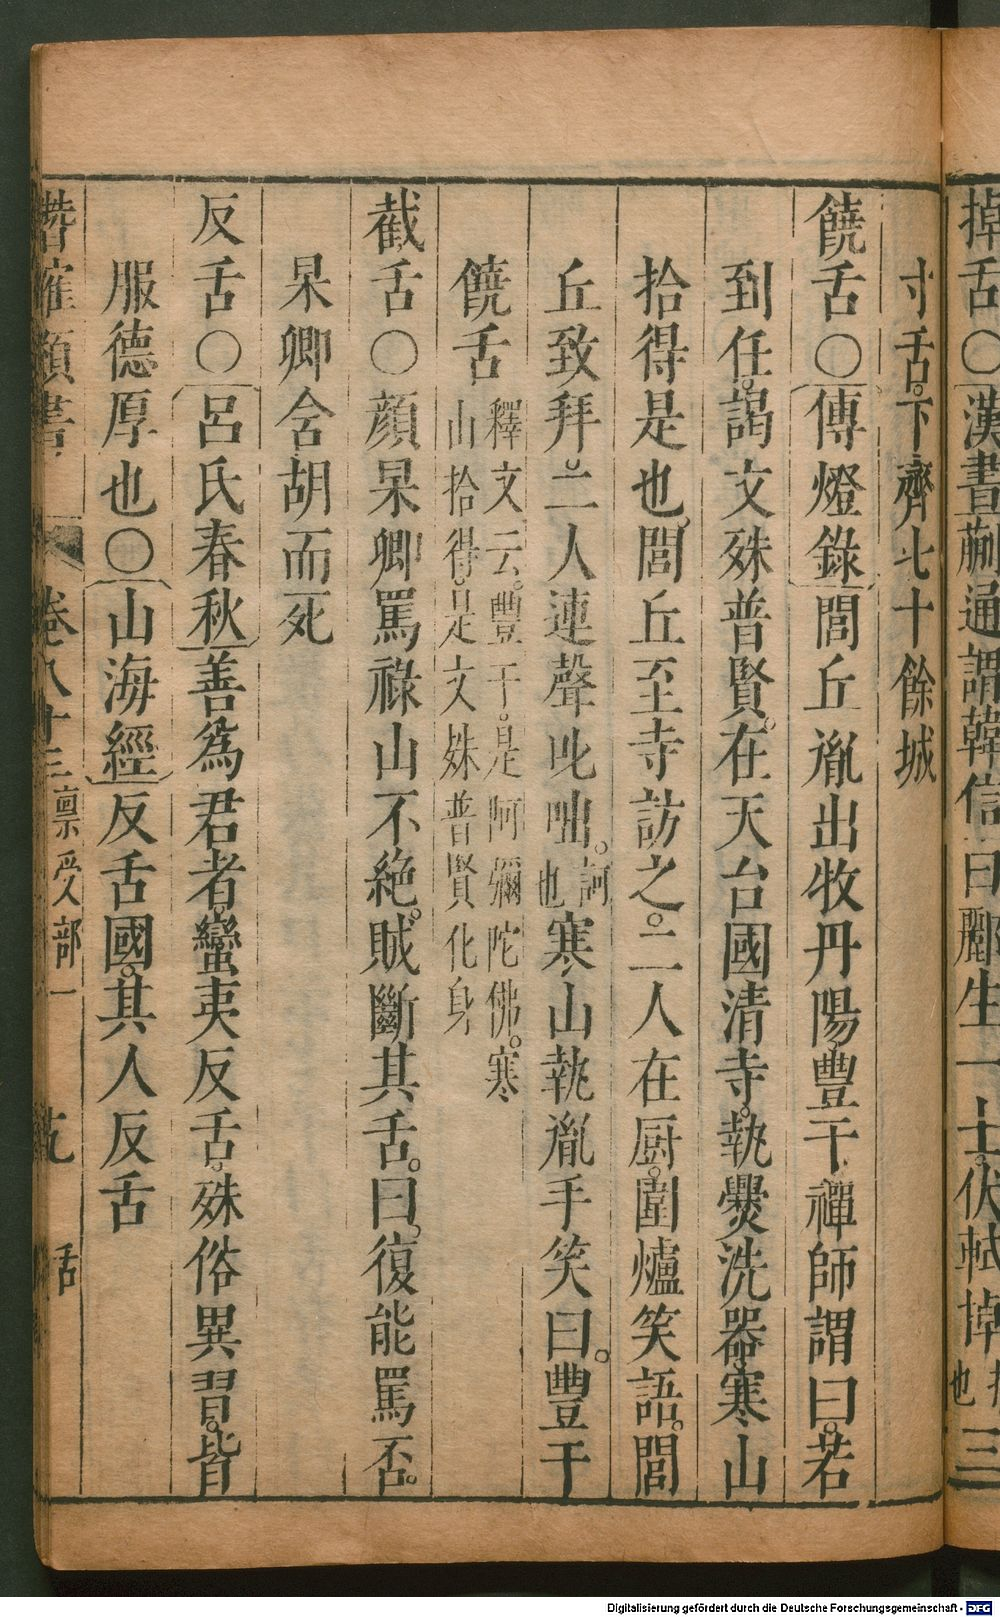 掉舌○漢書蒯通謂韓信曰酈生一士。伏軾掉三
也
寸舌。下齊七十餘城
饒舌○傳燈錄閭丘胤出牧丹陽。豐干禪師謂曰。若
到任。謁文殊普賢。在天台國清寺。執爨洗器。寒山
拾得是也。閭丘至寺訪之。二人在厨。圍爐笑語。閭
丘致拜。二人連聲叱咄。訶也寒山執胤手笑曰。豐干
饒舌釋文云。豐干。是阿彌陀佛。寒
山拾得。是文姝普賢化身
截舌○顔杲卿罵祿山不絶。賊斷其舌。曰。復能罵否。
杲卿含胡而死
反舌○呂氏春秋善爲君者。蠻夷反舌。殊俗異習。皆
服德厚也○山海經反舌國。其人反舌
類書 卷八十三 稟受部一 舌
Digitalisierung gefördert durch die Deutsche Forschungsgemeinschaft - DFG